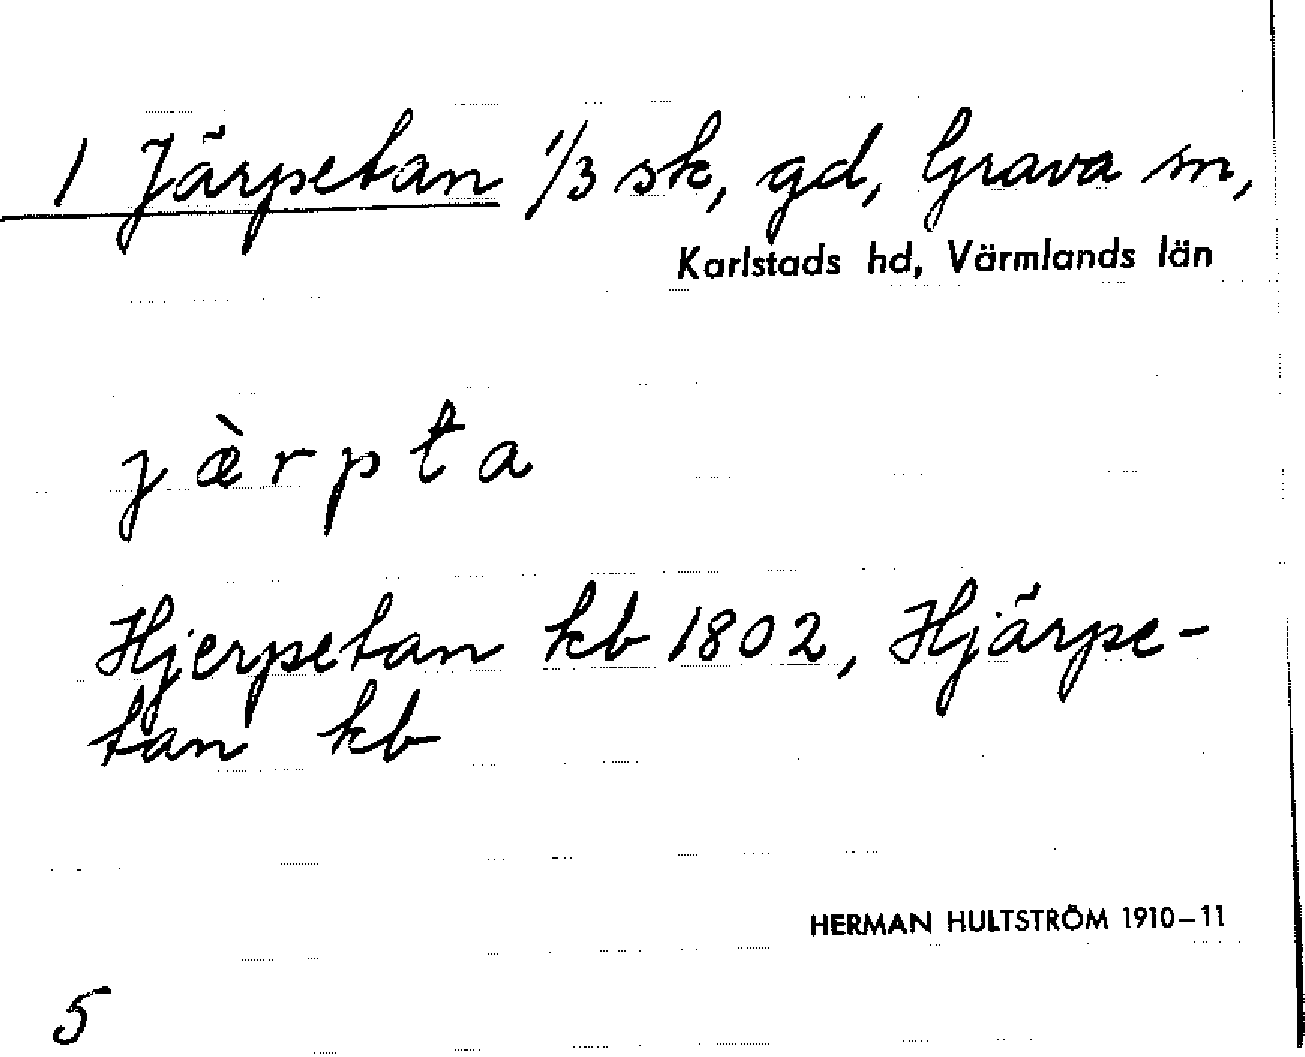 1 Järpetan 1/3 sk, gd, Grava sn,
Karlstads hd, Värmlands län
jæ̀rpta
Hjerpetan kb 1802, Hjärpe-
tan kb
HERMAN HULTSTRÖM 1910–11
5